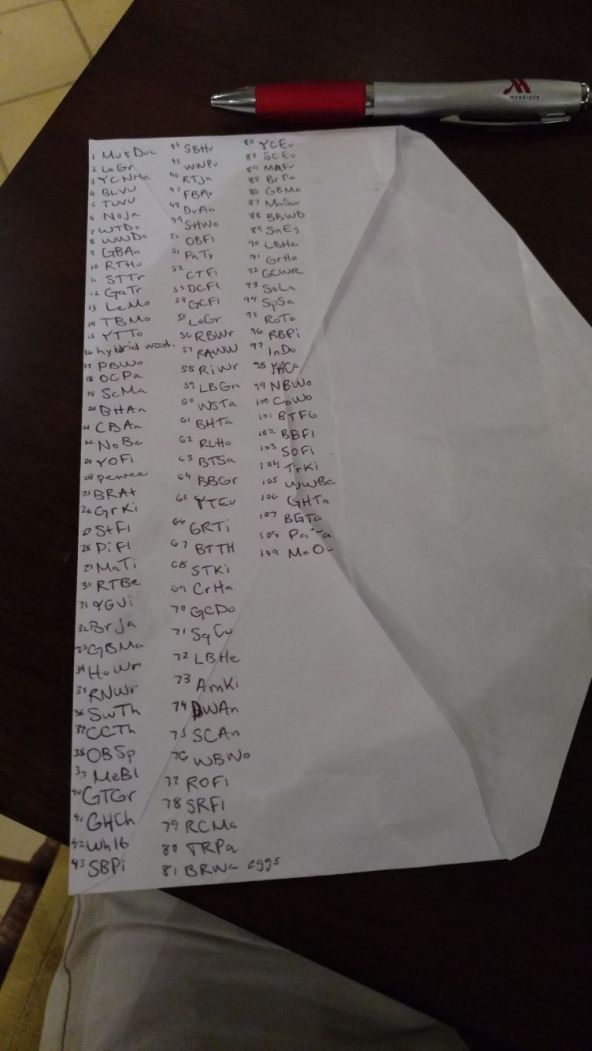 MARRIOTT
1 MusDuc
2 LeGr
3 YCNHe
4 BLVU
5 TUVU
6 NoJa
7 WTDo
8 WWDo
9 GBAn
10 RTHu
11 STTr
12 GaTr
13 LeMo
14 TBMo
15 YTTo
16 hybrid wood.
17 PBWo
18 OCPa
19 ScMa
20 BHAn
21 CBAn
22 NoBe
23 YOFi
24 pewee
25 BRAt
26 GrKi
27 StFl
28 PiFl
29 MaTi
30 RTBe
31 YGVi
32 BrJa
33 GBMa
34 HoWr
35 RNWr
36 SwTh
37 CCTh
38 OBSp
39 MeBl
40 GTGr
41 GHCh
42 WhIb
43 SBPi
44 SBHu
45 WWPu
46 RTJa
47 FBAr
48 DuAn
49 SHWo
50 OBFl
51 PaTr
52 CTFl
53 DCFl
54 GCFl
55 LoGr
56 RBWr
57 RAWW
58 RiWr
59 LBGn
60 WSTa
61 BHTa
62 RLHo
63 BTSa
64 BBGr
65 YTEu
66 GRTi
67 BTTH
68 STKi
69 CrHa
70 GCDo
71 SqCu
72 LBHe
73 AmKi
74 DWAn
75 SCAn
76 WBWo
77 ROFl
78 SRFl
79 RCMa
80 TRPa
81 BRWa eggs
82 YCEu
83 SCEu
84 MAFr
85 BrPa
86 GBMa
87 MaSw
88 BBWD
89 SnEg
90 LBHe
91 GrHe
92 GCWR
93 SoLa
94 SpSa
95 RoTe
96 RBPi
97 InDo
98 YHCa
99 NBWo
100 CoWo
101 BTFG
102 BBFl
103 SOFl
104 TrKi
105 WWBe
106 GHTa
107 BGTa
108 PaTa
109 MoOr